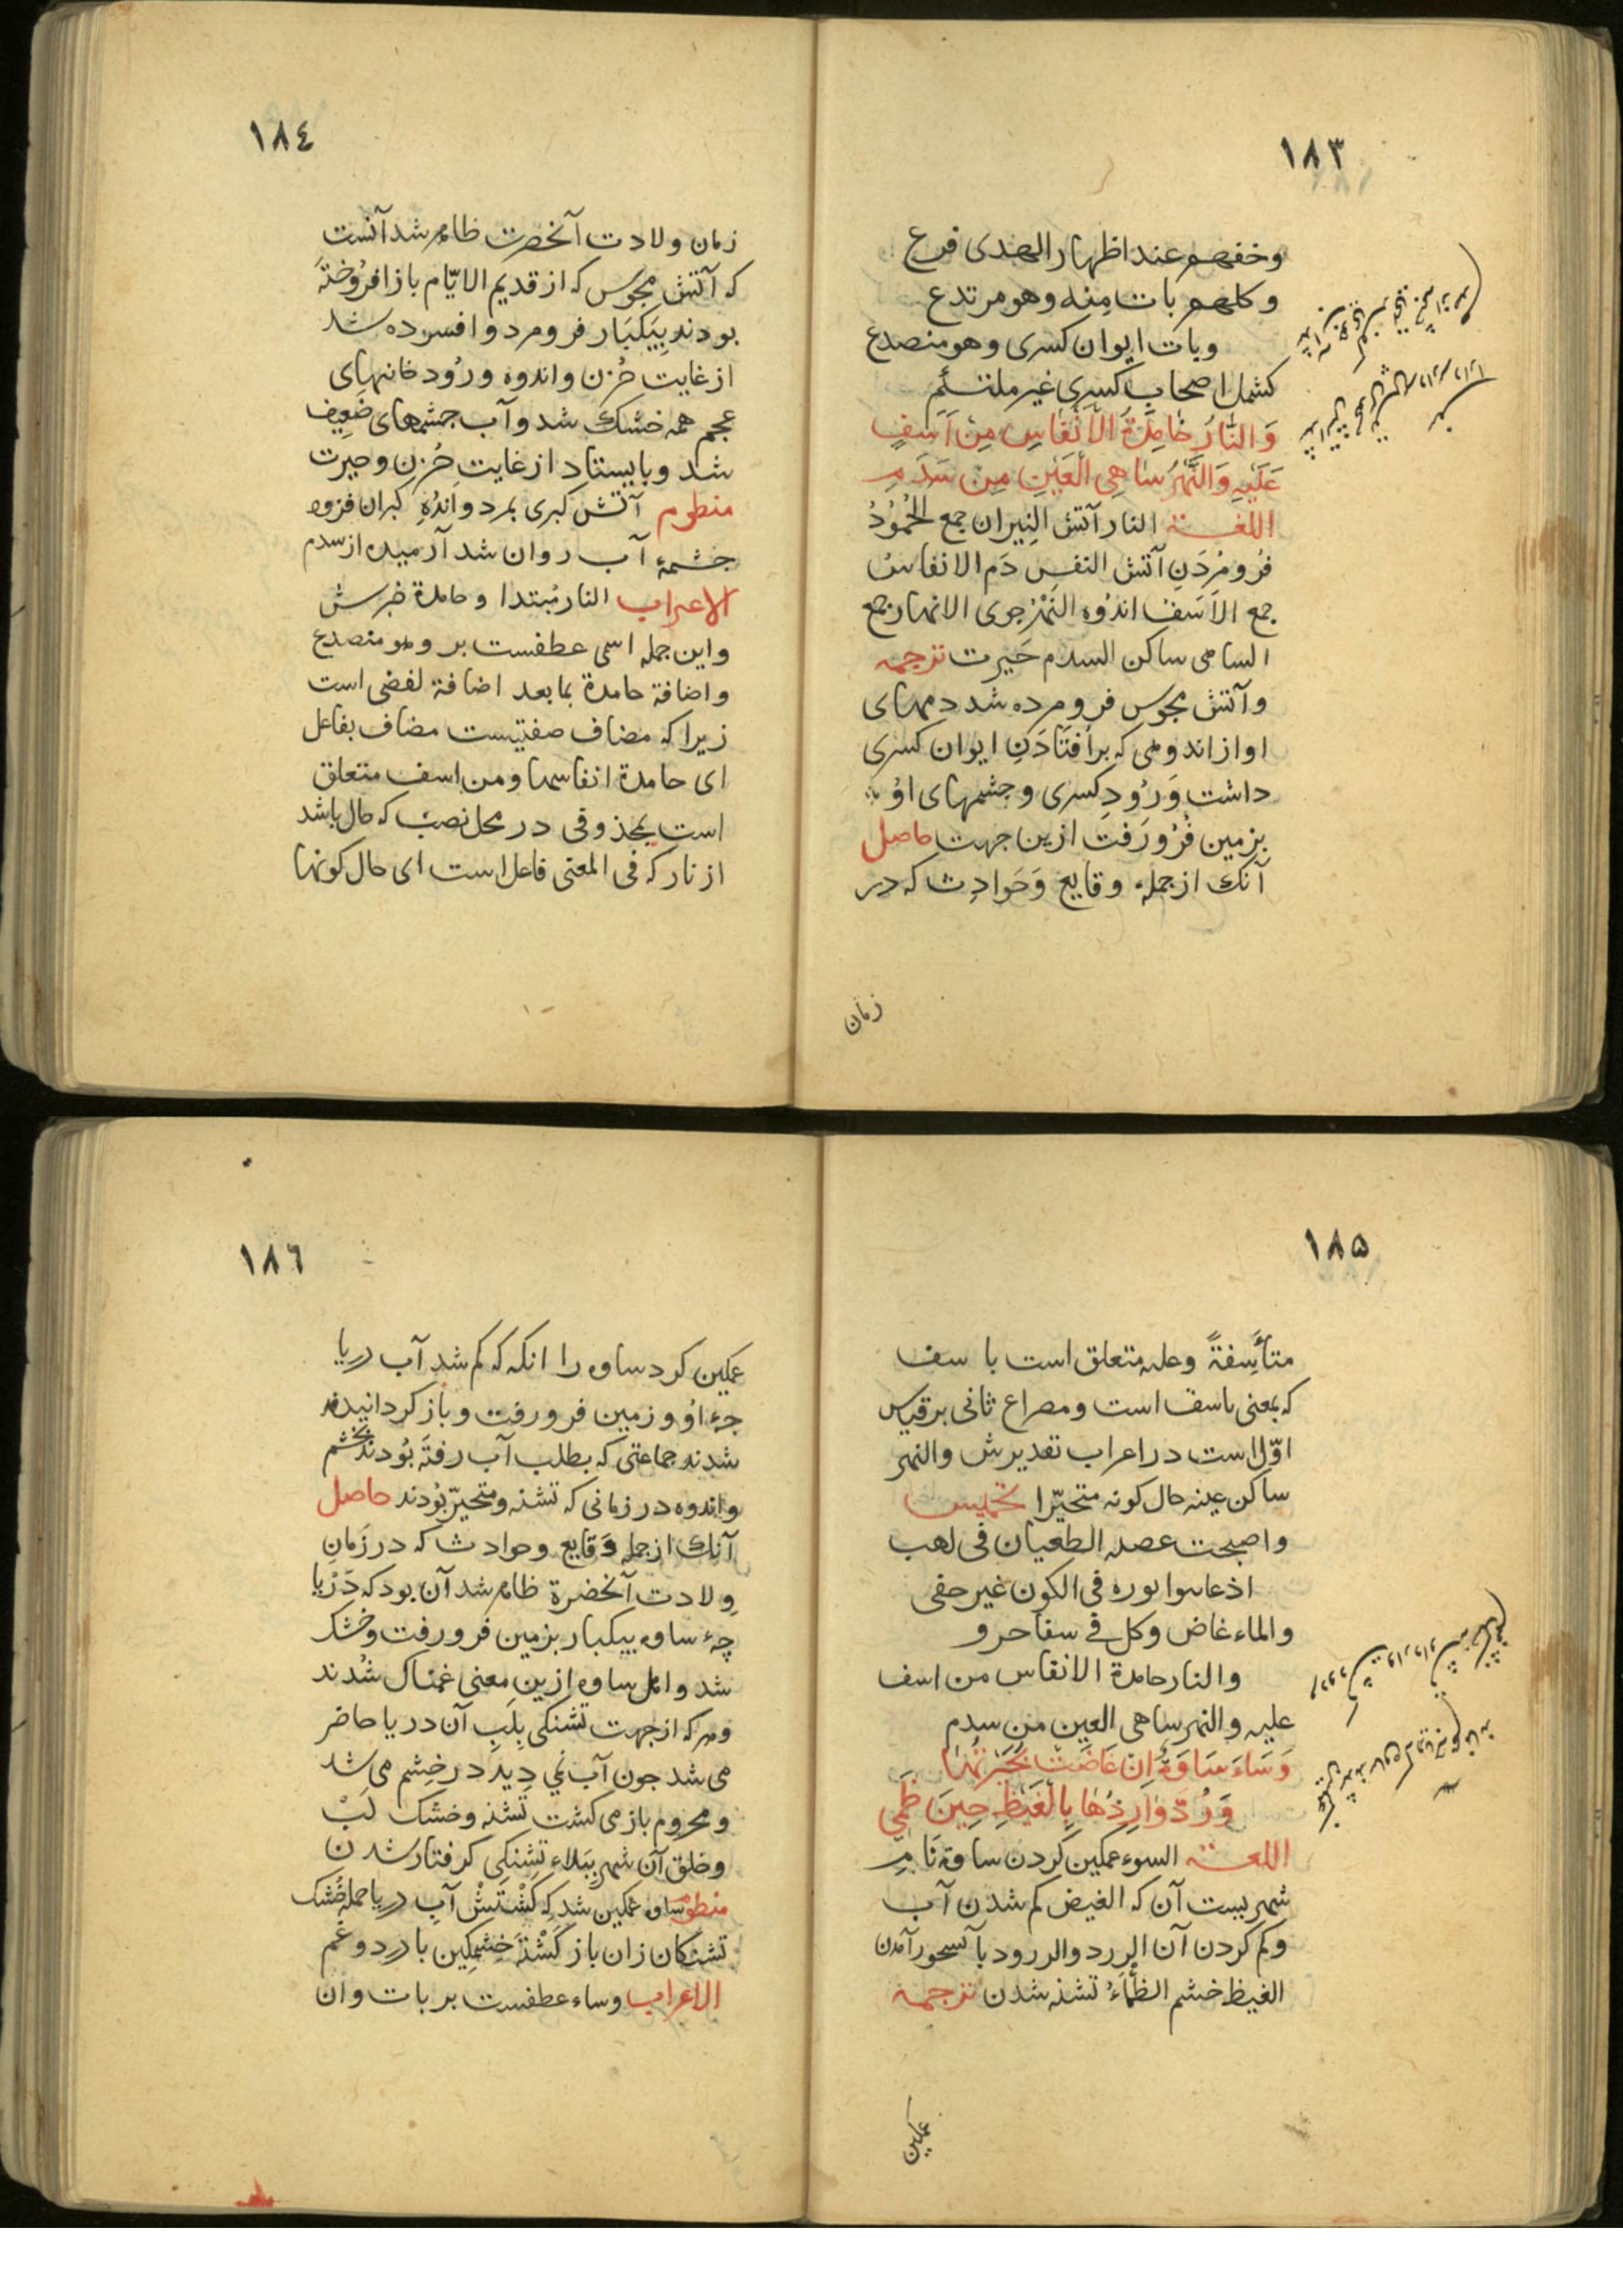 ١٨٣
وخفهم عند اظهار الهدی فرع
وكلهم بات منه وهو مرتدع
وبات ایوان كسری وهو منصدع
كشمل اصحاب كسری غیر ملتئم
وَالنَّارُ خَامِدَةُ الْاَنْفَاسِ مِنْ اَسَفٍ
عَلَیْهِ وَالنَّهْرُ سَاهِی الْعَیْنِ مِنْ سَدَمِ
اللغــة النار آتش النِیران جمع الخُمُوْدُ
فُرو مُردَنِ آتش النفس دَم الانفاس
جمع الاَسَف اندُوه النَهْرُ جوی الانهار جمع
الساهی ساكن السدم حَیرت ترجمه
وآتش مجوس فرو مرده شد دمهای
او از اندوهی كه بر اُفتادَنِ ایوان كسری
داشت وَرُودِ كسری وجشمهای اوُ
بزمین فُرُو رَفت ازین جهت حاصل
آنك از جملهٔ وقایع وَحَوادِث كه در
زمان
١٨٤
زمان ولادت آنحضرت ظاهر شد آنست
كه آتش مجوس كه از قدیم الایّام باز افرُوختَه
بودند بِیَكبَار فرو مرد و افسرده شد
از غایت حُزن واندوه ورُود خانهای
عجم همه خشك شد وآب جشمهای ضَعِیف
شد وبایستاد از غایتِ حُزنِ وحیرت
منظوم آتش كبری بمرد واندُهِ كبران فزود
جشمهٔ آب روان شد آرمیده از سدم
الاعراب النار مُبتدا وحامدة خبرش
واین جمله اسمی عطفست بر وهو منصدع
واضافة حامدة بما بعد اضافة لفضی است
زیرا كه مضاف صفتیست مضاف بفاعل
ای حامدة انفاسها ومن اسف متعلق
است بمحذوفی در محل نصب كه حال باشد
از نار كه فی المعنی فاعل است ای حال كونها
١٨۵
متأسِفةً وعلیه متعلق است با سف
كه بمعنی باسف است ومصراع ثانی بر قیاس
اوّل است در اعراب تقدیرش والنهر
ساكن عینه حال كونه متحیّرا تخمیس
واصبحت عصبه الطعیان فی لهب
اذ عاینوا نوره فی الكون غیر خفی
والماء غاض وكل فی سفاحرو
والنار حامدة الانفاس من اسف
علیه والنهر ساهی العین من سدم
وَسَاءَ سَاوَةُ اِنْ غَاضَتْ بُحَیْرَتُهَا
وَرُدَّ وَارِدُهَا بِالْغَیْظِ حِینَ ظَمِی
اللغــة السوء غمكین كردن ساوة نَامِ
شهریست آن كه الغیض كم شدن آب
وكم كردن آن الرد والرود با آبشخور آمدن
الغیظ خشم الظَّمَاءُ تشنه شدن ترجمه
غمكین
١٨٦
غمكین كرد ساوه را انكه كه كم شد آب دریا
جهٔ اوُ وزمین فرو رفت وباز كردانیده
شدند جماعتی كه بطلب آب رفتَه بُودند بخشم
واندوه در زمانی كه تشنه ومتحیّر بُودند حاصل
آنك از جمله وَقایع وحوادث كه در زَمانِ
وِلادت آنحضرة ظاهر شد آن بود كه دَرْیا
چهٔ ساوه بیكبار بزمین فرو رفت وخشك
شد واهل ساوه ازین معنی غمناك شُدند
وهر كه از جهت تشنكی بلبِ آن دریا حاضر
می شد جون آب نمی دِید در خِشم می شد
ومحروم باز می كشت تشنه وخشك لَبْ
وخلق آن شهر بِبَلاءِ تشنكی كرفتار شدن
منظوم ساوه غمكین شد كه كَشْتَشْ آب دریا جمله خُشك
تشنكان زان باز كَشْتَه خِشمكین با درد وغَم
الاعراب وساء عطفست بر بات وان